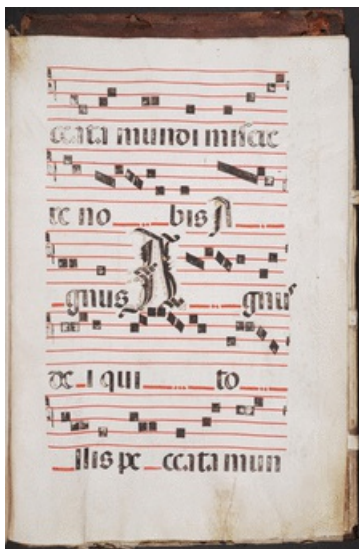 ccata mundi misere
re no bis A
gnus A gnus
de i qui to
llis pe ccata mun